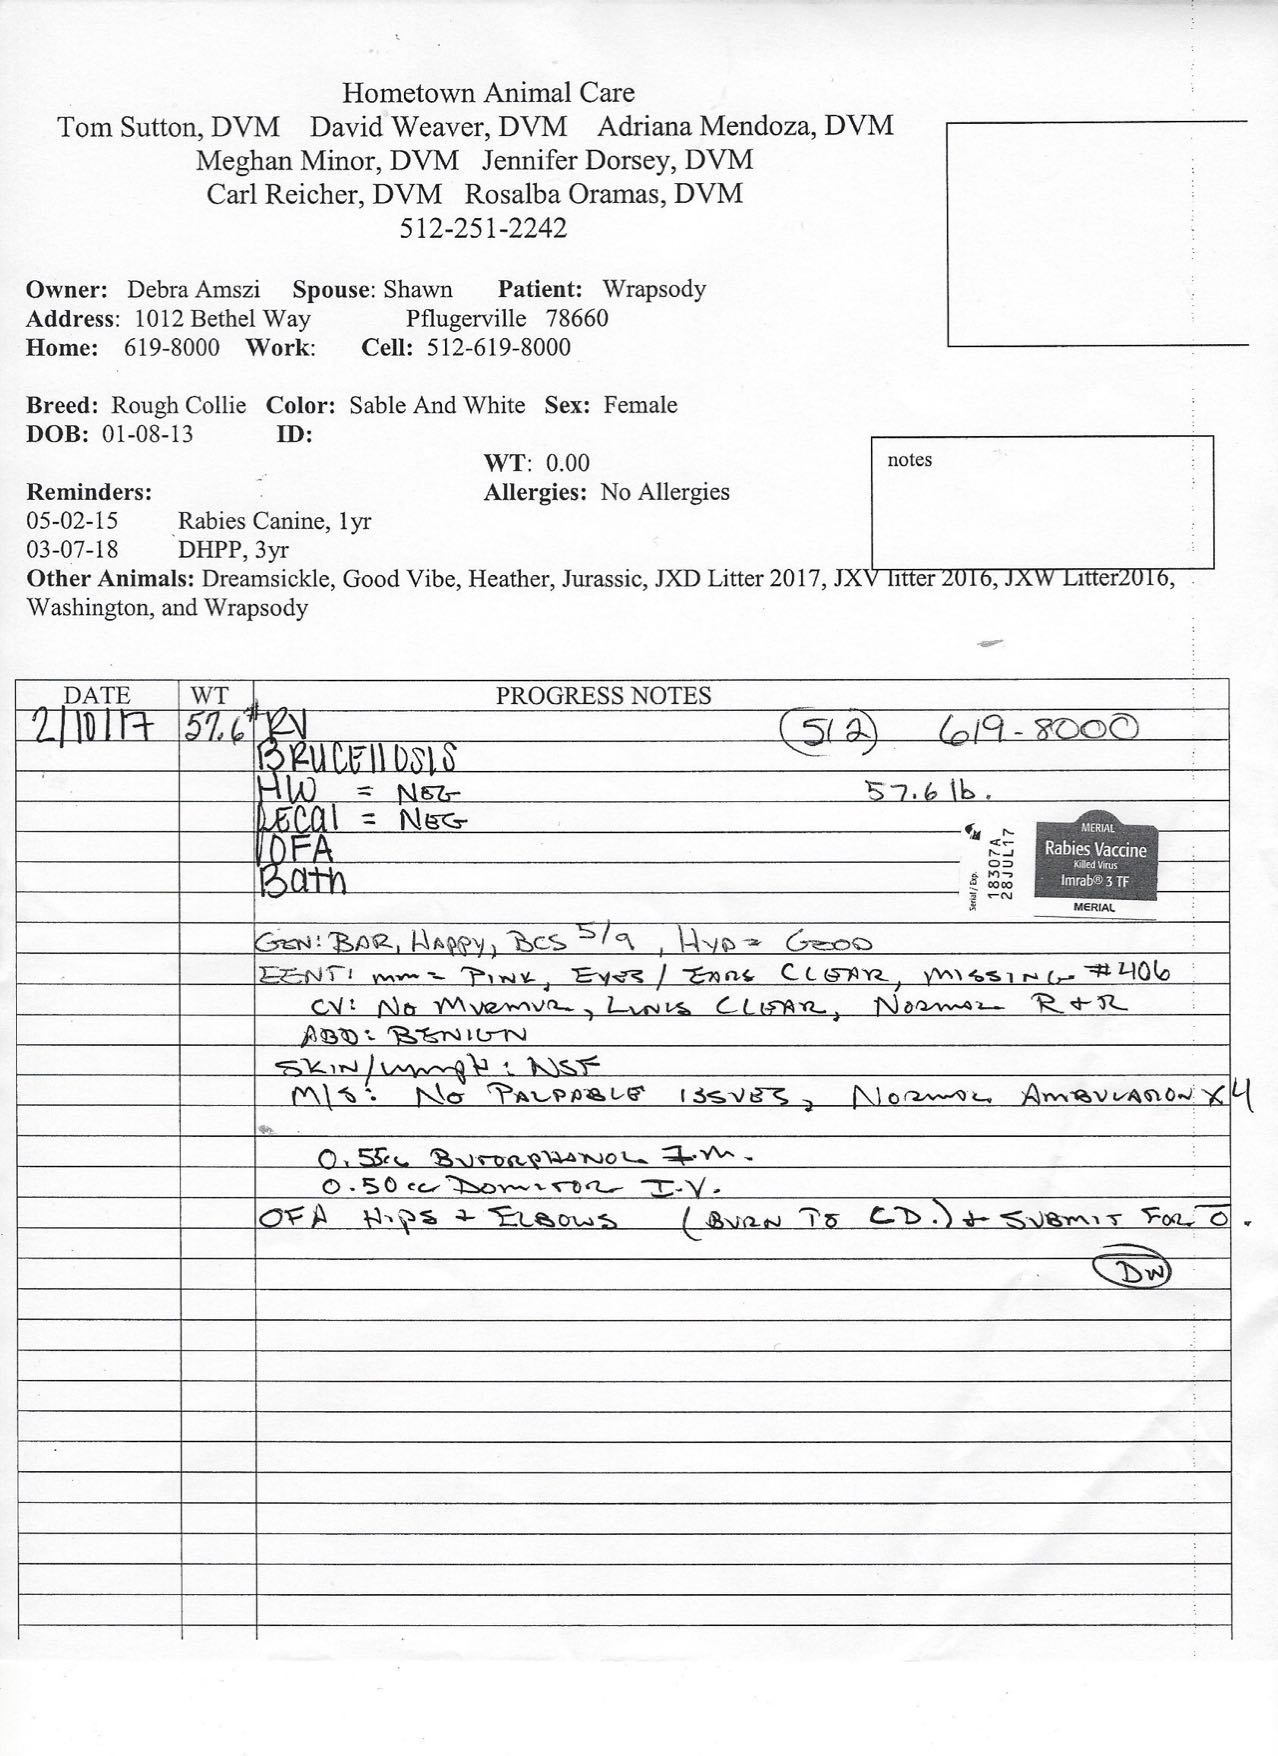 Hometown Animal Care
Tom Sutton, DVM David Weaver, DVM Adriana Mendoza, DVM
Meghan Minor, DVM Jennifer Dorsey, DVM
Carl Reicher, DVM Rosalba Oramas, DVM
512-251-2242
Owner: Debra Amszi Spouse: Shawn Patient: Wrapsody
Address: 1012 Bethel Way Pflugerville 78660
Home: 619-8000 Work: Cell: 512-619-8000
Breed: Rough Collie Color: Sable And White Sex: Female
DOB: 01-08-13 ID:
WT: 0.00
notes
Reminders: Allergies: No Allergies
05-02-15 Rabies Canine, 1yr
03-07-18 DHPP, 3yr
Other Animals: Dreamsickle, Good Vibe, Heather, Jurassic, JXD Litter 2017, JXV litter 2016, JXW Litter2016,
Washington, and Wrapsody
DATE WT PROGRESS NOTES
2/10/17 57.6# RV (512) 619-8000
BRUCEllOSIS
HW = NEG 57.6 lb.
FECAl = NEG
OFA
Bath
Serial / Exp. 18307A 28JUL17
MERIAL
Rabies Vaccine
Killed Virus
Imrab® 3 TF
MERIAL
GEN: BAR, HAPPY, BCS 5/9, HYD = GOOD
EENT: mm = PINK, EYES / EARS CLEAR, MISSING #406
CV: NO MURMUR, LUNGS CLEAR, NORMAL R + R
ABD: BENIGN
SKIN/Lymph: NSF
M/S: NO PALPABLE ISSUES, NORMAL AMBULATION X4
0.55cc BUTORPHANOL I.M.
0.50cc DOMITOR I.V.
OFA HIPS + ELBOWS (BURN TO CD.) + SUBMIT FOR O.
DW